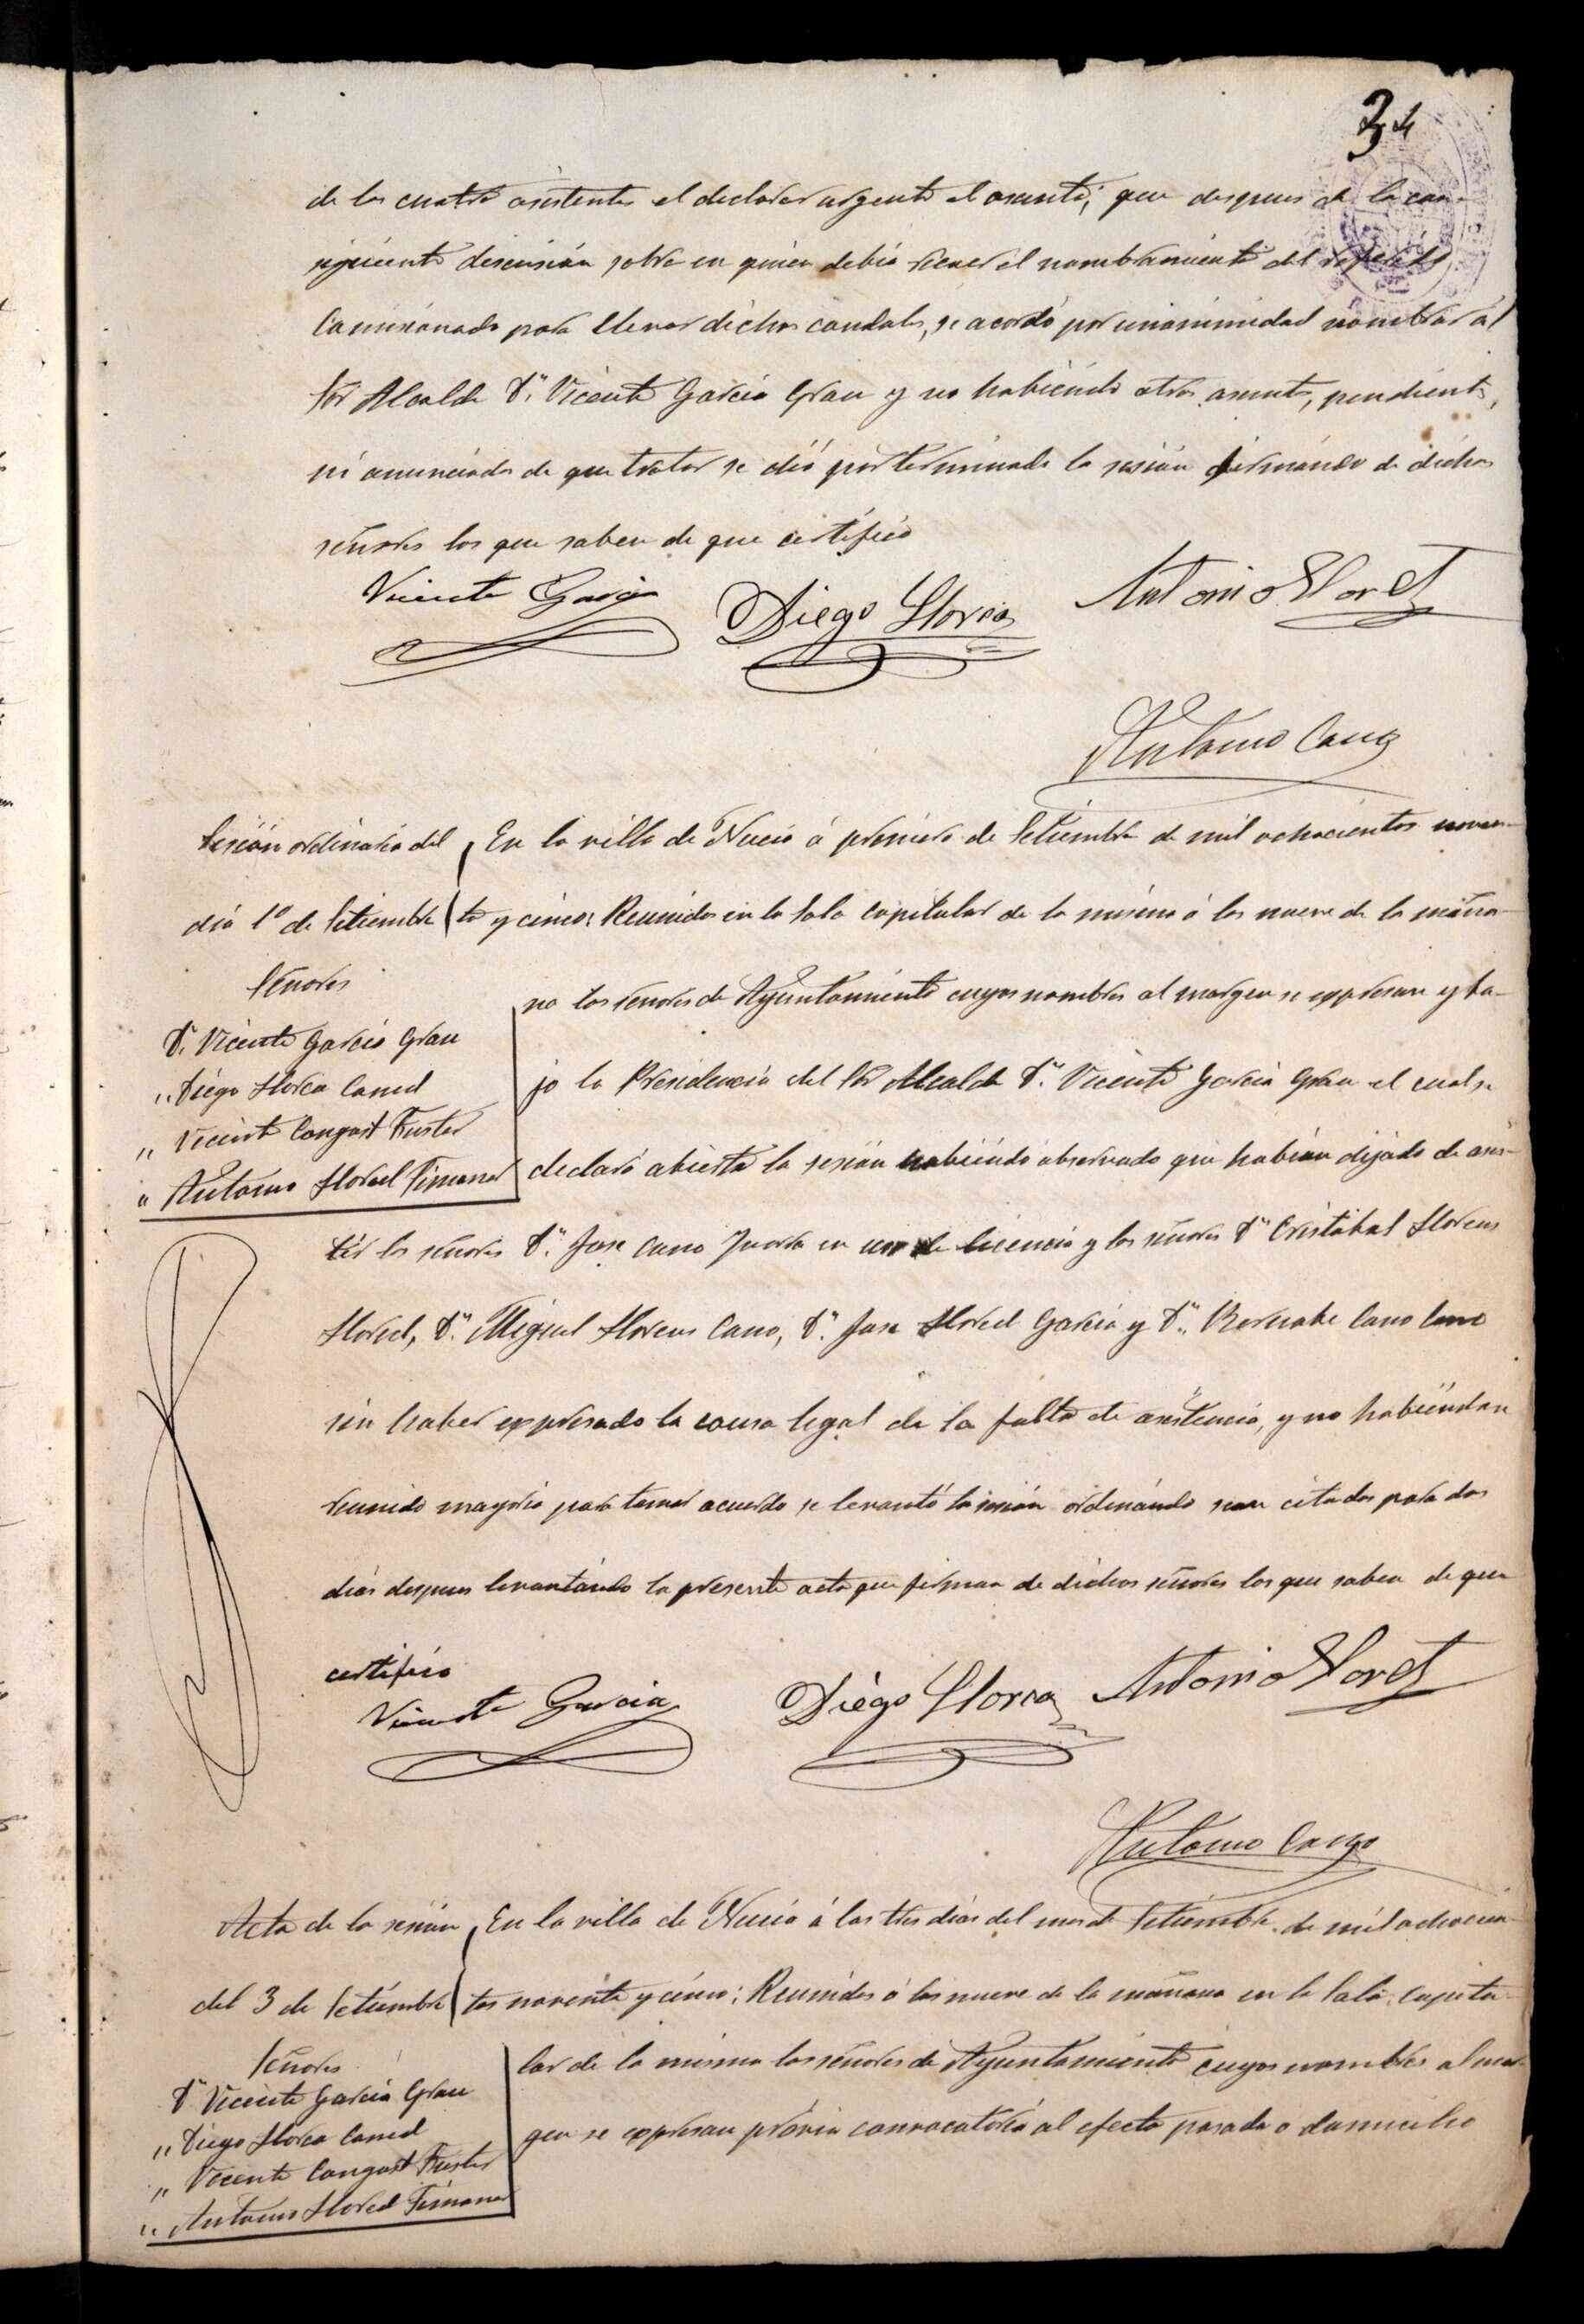 34
de los cuatro asistentes el declarar urgente el asunto; que despues de la con-
siguiente discusión sobre en quien debia recaer el nombramiento del referido
Comisionado para llevar dichos caudales, se acordó por unanimidad nombrar al
Sor Alcalde Dn Vicente Garcia Grau y no habiendo otros asuntos, pendientes,
ni anunciados de que tratar se dió por terminada la sesión firmando de dichos
señores los que saben de que certifico
Vicente Garcia Diego Llorca Antonio Lloret
Antonio Cano
Sesión ordinaria del
dia 1º de Setiembre
Señores
Dn Vicente Garcia Grau
" Diego Llorca Caned
" Vicente Congost Fuster
" Antonio Lloret Timoner
En la villa de Nucia á primero de Setiembre de mil ochocientos noven-
ta y cinco: Reunidos en la Sala Capitular de la misma á las nueve de la maña-
na los señores de Ayuntamiento cuyos nombres al margen se expresan y ba-
jo la Presidencia del Sor Alcalde Dn Vicente Garcia Grau el cual se
declaró abierta la sesión habiendo observado que habian dejado de asis-
tir los señores Dn Jose Cano en uso de licencia y los señores Dn Cristobal Llorens
Lloret, Dn Miguel Llorens Cano, Dn Jose Lloret Garcia y Dn Bernabe Cano Cano
sin haber expresado la causa legal de la falta de asistencia, y no habiendose
reunido mayoria para tomar acuerdo se levantó la sesión ordenando sean citados para dos
dias despues levantando la presente acta que firman de dichos señores los que saben de que
certifico
Vicente Garcia Diego Llorca Antonio Lloret
Antonio Cano
Acta de la sesión
del 3 de Setiembre
Señores
Dn Vicente Garcia Grau
" Diego Llorca Caned
" Vicente Congost Fuster
" Antonio Lloret Timoner
En la villa de Nucia á los tres dias del mes de Setiembre de mil ochocien-
tos noventa y cinco: Reunidos á las nueve de la mañana en la Sala Capitu-
lar de la misma los señores de Ayuntamiento cuyos nombres al mar-
gen se expresan prévia convocatoria al efecto pasada a domicilio